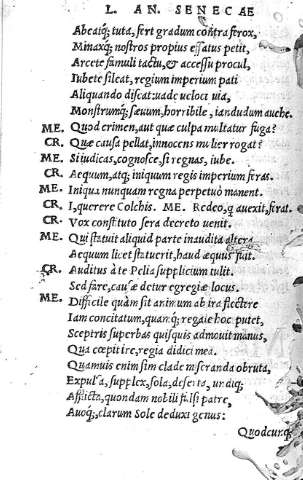 L. AN. SENECAE
Abeatq; tuta, fert gradum contra ferox,
Minaxq; nostros propius effatus petit,
Arcete famuli tactu, & accessu procul,
Iubete sileat, regium imperium pati
Aliquando discat: uade ueloci uia,
Monstrumq; sæuum, horribile, iamdudum auehe.
ME. Quod crimen, aut quæ culpa multatur fuga?
CR. Quæ causa pellat, innocens mulier rogat?
ME. Si iudicas, cognosce, si regnas, iube.
CR. Aequum, atq; iniquum regis imperium feras.
ME. Iniqua nunquam regna perpetuò manent.
CR. I, querere Colchis. ME. Redeo, q auexit, ferat.
CR. Vox constituto sera decreto uenit.
ME. Qui statuit aliquid parte inaudita altera,
Aequum licet statuerit, haud æquus fuit.
CR. Auditus à te Pelia supplicium tulit.
Sed fare, causæ detur egregiæ locus.
ME. Difficile quàm sit animum ab ira flectere
Iam concitatum, quamq; regale hoc putet,
Sceptris superbas quisquis admouit manus,
Qua cœpit ire, regia didici mea.
Quamuis enim sim clade miseranda obruta,
Expulsa, supplex, sola, deserta, undiq;
Afflicta, quondam nobili fulsi patre,
Auoq; clarum Sole deduxi genus:
Quodcunq;